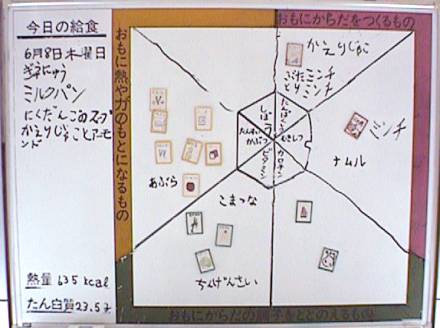 今日の給食
6月8日木曜日
ぎゅうにゅう
ミルクパン
にくだんごのスープ
かえりじゃことアーモ
ンド
熱量 635 kcal
たん白質23.5g
おもに熱や力のもとになるもの
おもにからだをつくるもの
おもにからだの調子をととのえるもの
かえりじゃこ
ぶたミンチ
とりミンチ
ミンチ
ナムル
あぶら
こまつな
ちんげんさい
しぼう
たんぱくしつ
むきしつ
たんすいかぶつ
ビタミン
カロチン